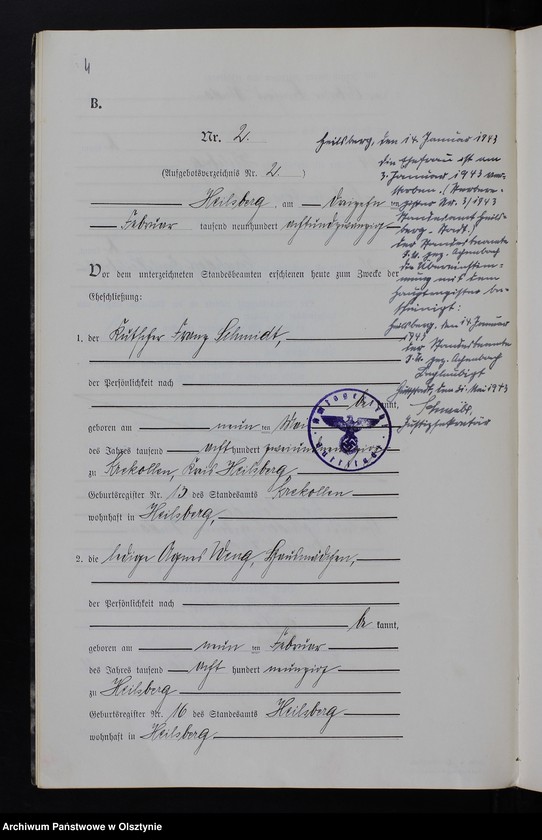 4
B.
Nr. 2.
(Aufgebotsverzeichnis Nr. 2)
Heilsberg, am dreizehnten
Februar tausend neunhundert achtundzwanzig
Vor dem unterzeichneten Standesbeamten erschienen heute zum Zwecke der
Eheschließung:
1. der Franz Schmidt,
der Persönlichkeit nach
be kannt,
geboren am neunten Mai
des Jahres tausend acht hundert
zu Krekollen, Kreis Heilsberg
Geburtsregister Nr. 13 des Standesamts Krekollen
wohnhaft in Heilsberg,
2. die ledige Agnes Weng, Hausmädchen,
der Persönlichkeit nach
be kannt,
geboren am neun ten Februar
des Jahres tausend acht hundert neunzig
zu Heilsberg
Geburtsregister Nr. 16 des Standesamts Heilsberg
wohnhaft in Heilsberg
Heilsberg, den 14. Januar 1943
Die Ehefrau ist am
3. Januar 1943 ver-
storben. (Sterbere-
gister Nr. 3/1943
Standesamt Heils-
berg-Stadt.)
Der Standesbeamte
I.V. gez. Achenbach
die Übereinstim-
mung mit dem
Hauptregister be-
scheinigt:
Heilsberg, den 14. Januar
1943
Der Standesbeamte
I.V. gez. Achenbach
Beglaubigt
Guttstadt, den 31. Mai 1943
Justizsekretär
Amtsgericht Guttstadt
Archiwum Państwowe w Olsztynie